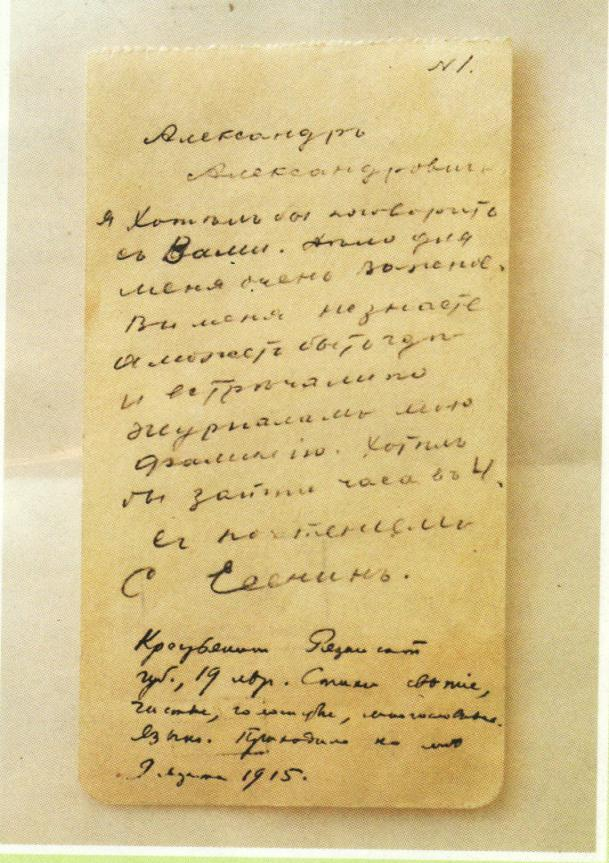 N1.
Александръ
Александровичъ
я хотѣлъ бы поговорить
съ Вами. Дѣло для
меня очень важное.
Вы меня не знаете
а может быть где
и встречали по
журналамъ мою
фамилію. Хотѣлъ
бы зайти часа въ 4.
съ почтениемъ
С Есенинъ.
Крестьянин Рязанской
губ., 19 лет. Стихи свежие,
чистые, голосистые, многословные.
Язык. Приходил ко мне
9 марта 1915.